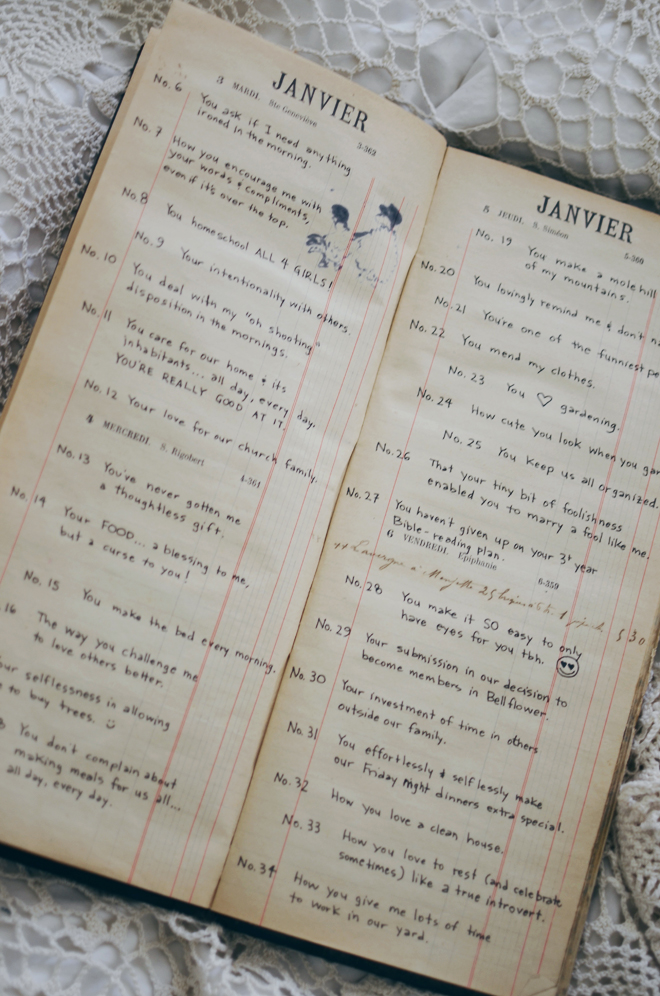 JANVIER
3 MARDI. Ste Geneviève 3-362
No. 6 You ask if I need anything
ironed in the morning.
No. 7 How you encourage me with
your words & compliments,
even if it's over the top.
No. 8 You homeschool ALL 4 GIRLS!
No. 9 Your intentionality with others.
No. 10 You deal with my "oh shooting"
disposition in the mornings.
No. 11 You care for our home & its
inhabitants... all day, every day.
YOU'RE REALLY GOOD AT IT.
No. 12 Your love for our church family.
4 MERCREDI. S. Rigobert 4-361
No. 13 You've never gotten me
a thoughtless gift.
No. 14 Your FOOD... a blessing to me,
but a curse to you!
No. 15 You make the bed every morning.
16 The way you challenge me
to love others better.
selflessness in allowing
to buy trees. :)
You don't complain about
making meals for us all...
all day, every day.
JANVIER
5 JEUDI. S. Siméon 5-360
No. 19 You make a mole hill
of my mountains.
No. 20 You lovingly remind me & don't
No. 21 You're one of the funniest
No. 22 You mend my clothes.
No. 23 You ♡ gardening.
No. 24 How cute you look when you
No. 25 You keep us all organized.
No. 26 That your tiny bit of foolishness
enabled you to marry a fool like me.
No. 27 You haven't given up on your 3+ year
Bible-reading plan.
6 VENDREDI. Epiphanie 6-359
No. 28 You make it SO easy to only
have eyes for you tbh. 😍
No. 29 Your submission in our decision to
become members in Bellflower.
No. 30 Your investment of time in others
outside our family.
No. 31 You effortlessly & selflessly make
our Friday night dinners extra special.
No. 32 How you love a clean house.
No. 33 How you love to rest (and celebrate
sometimes) like a true introvert.
No. 34 How you give me lots of time
to work in our yard.